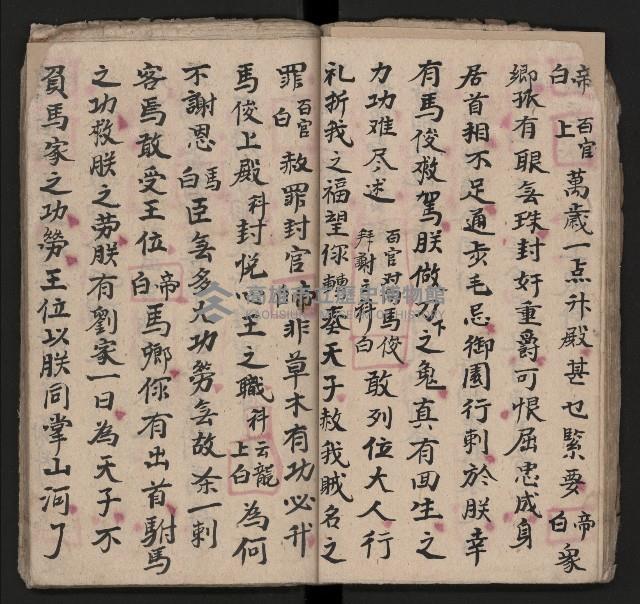 帝白 百官上 萬歲一点升殿甚乜緊要 帝白 衆
鄉孤有眼無珠封奸重爵可恨屈忠成身
居首相不足通夛毛忌御園行刺於朕幸
有馬俊救駕朕做下之鬼真有回生之
力功难尽述 百官対馬俊拜謝科白 敢列位大人行
礼折我之福望你轉奏天子赦我贼名之
罪 百官白 赦罪封官 帝白 非草木有功必升
馬俊上殿 科 封悦 王之職 科 云龍上白 為何
不謝恩 馬白 臣無多大功勞無故杀一刺
客焉敢受王位 帝白 馬鄉你有出首駙馬
之功救朕之劳朕有劉家一日為天子不
負馬家之功勞王位以朕同掌山河了
高雄市立歷史博物館
KAOHSIUNG MUSEUM OF HISTORY